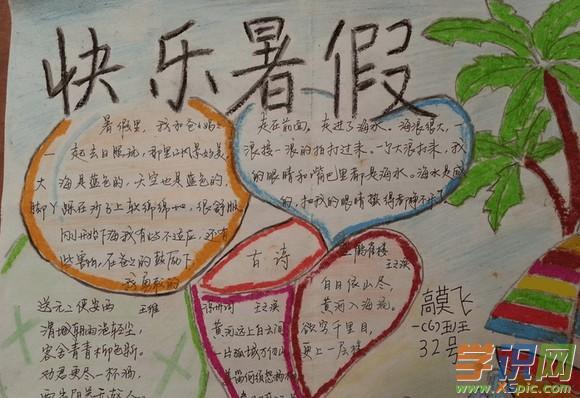 快乐暑假
暑假里，我和爸妈
一起去日照玩，那里风景好美，
大海是蓝色的，天空也是蓝色的，
脚丫踩在沙子上软绵绵的，很舒服
刚开始下海我有些不适应，还有
些害怕，在爸爸的鼓励下，
我勇敢的
走在前面。走进了海水。海浪很大，一
浪接一浪的拍打过来。一个大浪打来，我
的眼睛和嘴巴里都是海水。海水是咸
的，把我的眼睛
古诗
送元二使安西 王维
渭城朝雨浥轻尘，
客舍青青柳色新。
劝君更尽一杯酒，
西出阳关无故人
凉州词 王之涣
黄河远上白云间
一片孤城万仞山
羌笛何须怨杨柳
登鹳雀楼
王之涣
白日依山尽，
黄河入海流。
欲穷千里目，
更上一层楼
高莫飞
一(6)班
32号
学识网
www.XSpic.com